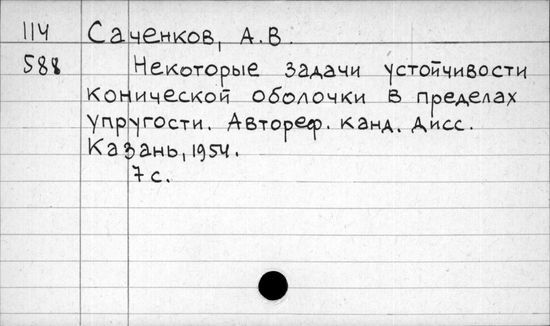 114 Саченков, А.В.
588 Некоторые задачи устойчивости
конической оболочки в пределах
упругости. Автореф. канд. дисс.
Казань, 1954.
7 с.